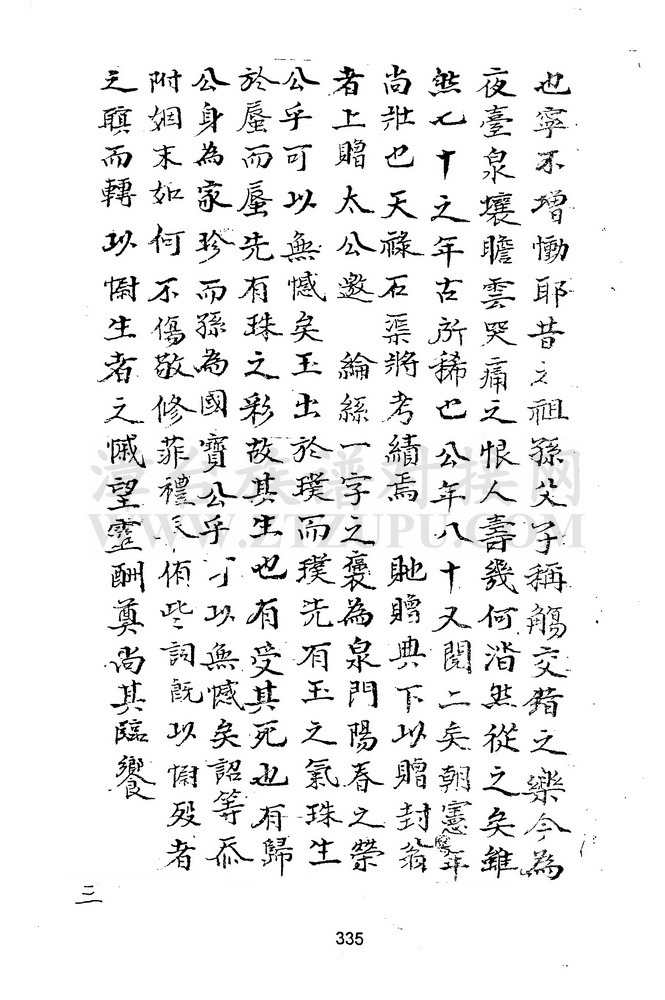 也寧不增慟耶昔之祖孫父子稱觴交錯之樂今為
夜臺泉壤瞻雲哭痛之恨人壽幾何溘然從之矣雖
然七十之年古所稀也公年八十又閱二矣朝憲年
尚壯也天祿石渠將考績焉 貤贈典下以贈封翁
者上贈太公邀 綸絲一字之褒為泉門陽春之榮
公乎可以無憾矣玉出於璞而璞先有玉之氣珠生
於蜃而蜃先有珠之彩故其生也有受其死也有歸
公身為家珍而孫為國寶公乎可以無憾矣詔等忝
附姻末如何不傷敬修菲禮 侑些詞既以慰歿者
之瞑而轉以慰生者之慽望靈酬奠尚其臨饗
三
335
漳台族谱对接网
WWW.ZTZUPU.COM